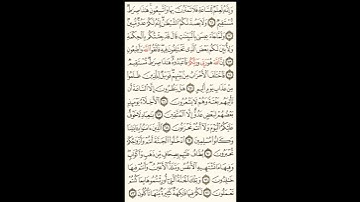 وَإِنَّهُۥ لَعِلْمٌ لِّلسَّاعَةِ فَلَا تَمْتَرُنَّ بِهَا وَٱتَّبِعُونِ هَٰذَا صِرَٰطٌ
مُّسْتَقِيمٌ ٦١ وَلَا يَصُدَّنَّكُمُ ٱلشَّيْطَٰنُ إِنَّهُۥ لَكُمْ عَدُوٌّ مُّبِينٌ
٦٢ وَلَمَّا جَآءَ عِيسَىٰ بِٱلْبَيِّنَٰتِ قَالَ قَدْ جِئْتُكُم بِٱلْحِكْمَةِ
وَلِأُبَيِّنَ لَكُم بَعْضَ ٱلَّذِى تَخْتَلِفُونَ فِيهِ فَٱتَّقُوا۟ ٱللَّهَ وَأَطِيعُونِ
٦٣ إِنَّ ٱللَّهَ هُوَ رَبِّى وَرَبُّكُمْ فَٱعْبُدُوهُ هَٰذَا صِرَٰطٌ مُّسْتَقِيمٌ
٦٤ فَٱخْتَلَفَ ٱلْأَحْزَابُ مِنۢ بَيْنِهِمْ فَوَيْلٌ لِّلَّذِينَ ظَلَمُوا۟
مِنْ عَذَابِ يَوْمٍ أَلِيمٍ ٦٥ هَلْ يَنظُرُونَ إِلَّا ٱلسَّاعَةَ أَن
تَأْتِيَهُم بَغْتَةً وَهُمْ لَا يَشْعُرُونَ ٦٦ ٱلْأَخِلَّآءُ يَوْمَئِذٍۭ
بَعْضُهُمْ لِبَعْضٍ عَدُوٌّ إِلَّا ٱلْمُتَّقِينَ ٦٧ يَٰعِبَادِ لَا خَوْفٌ
عَلَيْكُمُ ٱلْيَوْمَ وَلَآ أَنتُمْ تَحْزَنُونَ ٦٨ ٱلَّذِينَ ءَامَنُوا۟ بِـَٔايَٰتِنَا
وَكَانُوا۟ مُسْلِمِينَ ٦٩ ٱدْخُلُوا۟ ٱلْجَنَّةَ أَنتُمْ وَأَزْوَٰجُكُمْ
تُحْبَرُونَ ٧٠ يُطَافُ عَلَيْهِم بِصِحَافٍ مِّن ذَهَبٍ وَأَكْوَابٍ
وَفِيهَا مَا تَشْتَهِيهِ ٱلْأَنفُسُ وَتَلَذُّ ٱلْأَعْيُنُ وَأَنتُمْ فِيهَا
خَٰلِدُونَ ٧١ وَتِلْكَ ٱلْجَنَّةُ ٱلَّتِىٓ أُورِثْتُمُوهَا بِمَا كُنتُمْ
تَعْمَلُونَ ٧٢ لَكُمْ فِيهَا فَٰكِهَةٌ كَثِيرَةٌ مِّنْهَا تَأْكُلُونَ ٧٣